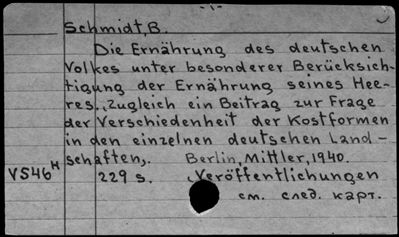 -1-
Schmidt, B.
Die Ernährung des deutschen
Volkes unter besonderer Berücksich-
tigung der Ernährung seines Hee-
res. Zugleich ein Beitrag zur Frage
der Verschiedenheit der Kostformen
in den einzelnen deutschen Land-
schaften. Berlin, Mittler, 1940.
VS46 H 229 s. Veröffentlichungen
см. след. карт.